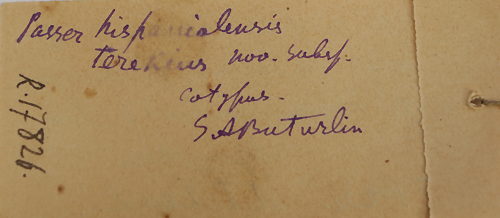 Passer hispaniolensis
terekius nov. subsp.
cotypus.
SAButurlin
R.17826.